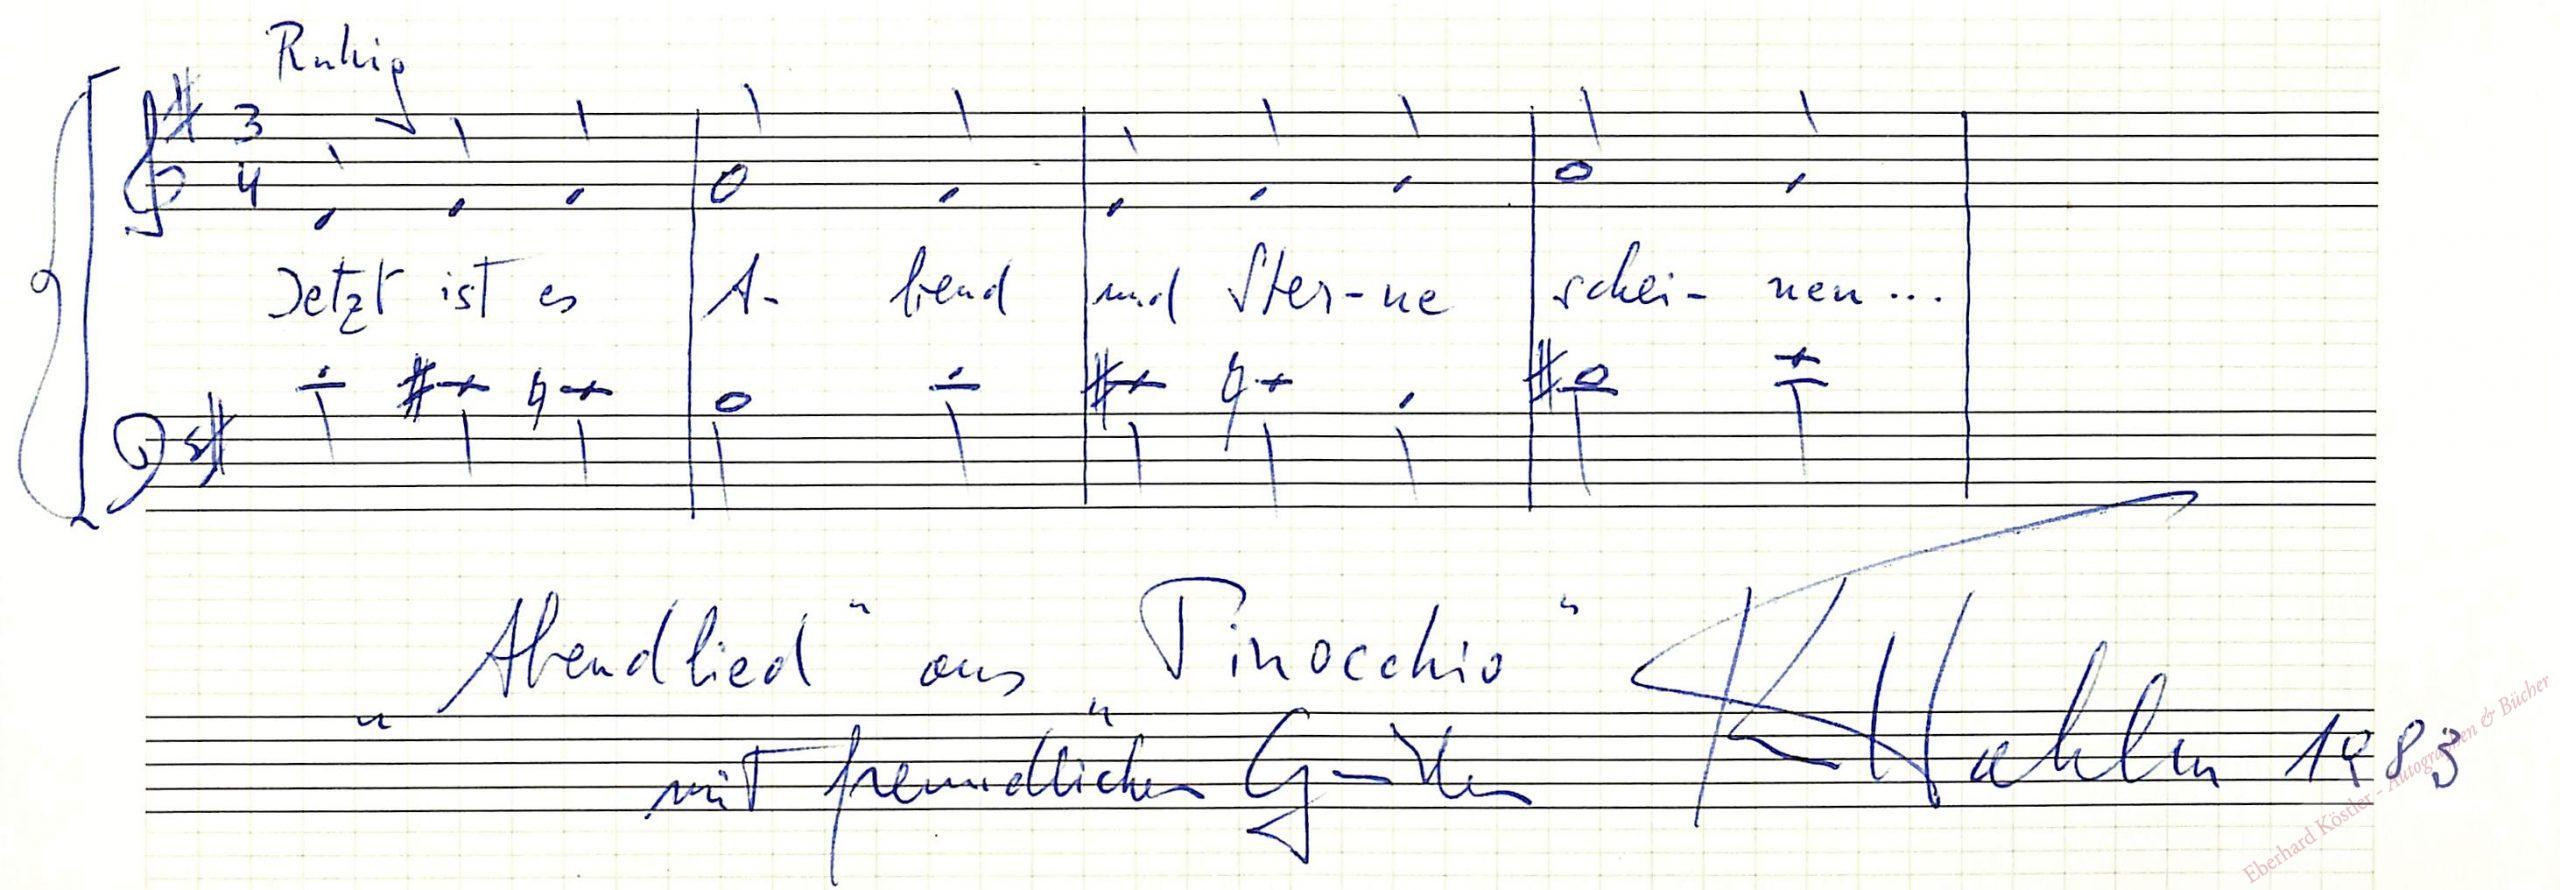 Ruhig
3
4
Jetzt ist es A- bend und Ster-ne schei- nen...
"Abendlied" aus "Pinocchio"
mit freundlichen Grüßen
1983
Eberhard Köstler - Autographen & Bücher